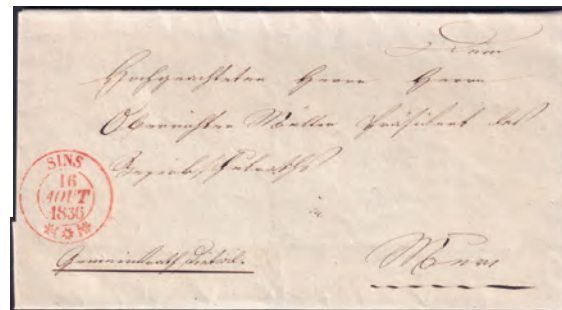 Dem
Hochgeachteten Herrn Herrn
Oberrichter Müller Präsident des
Bezirks
in
Muri
SINS
16
AOUT
1836
Gemeindrath Dietwil.